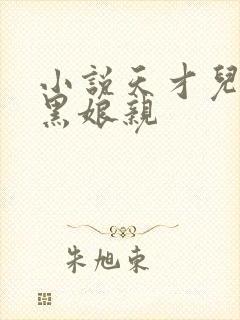 小說天才兒
黑娘親
朱旭东